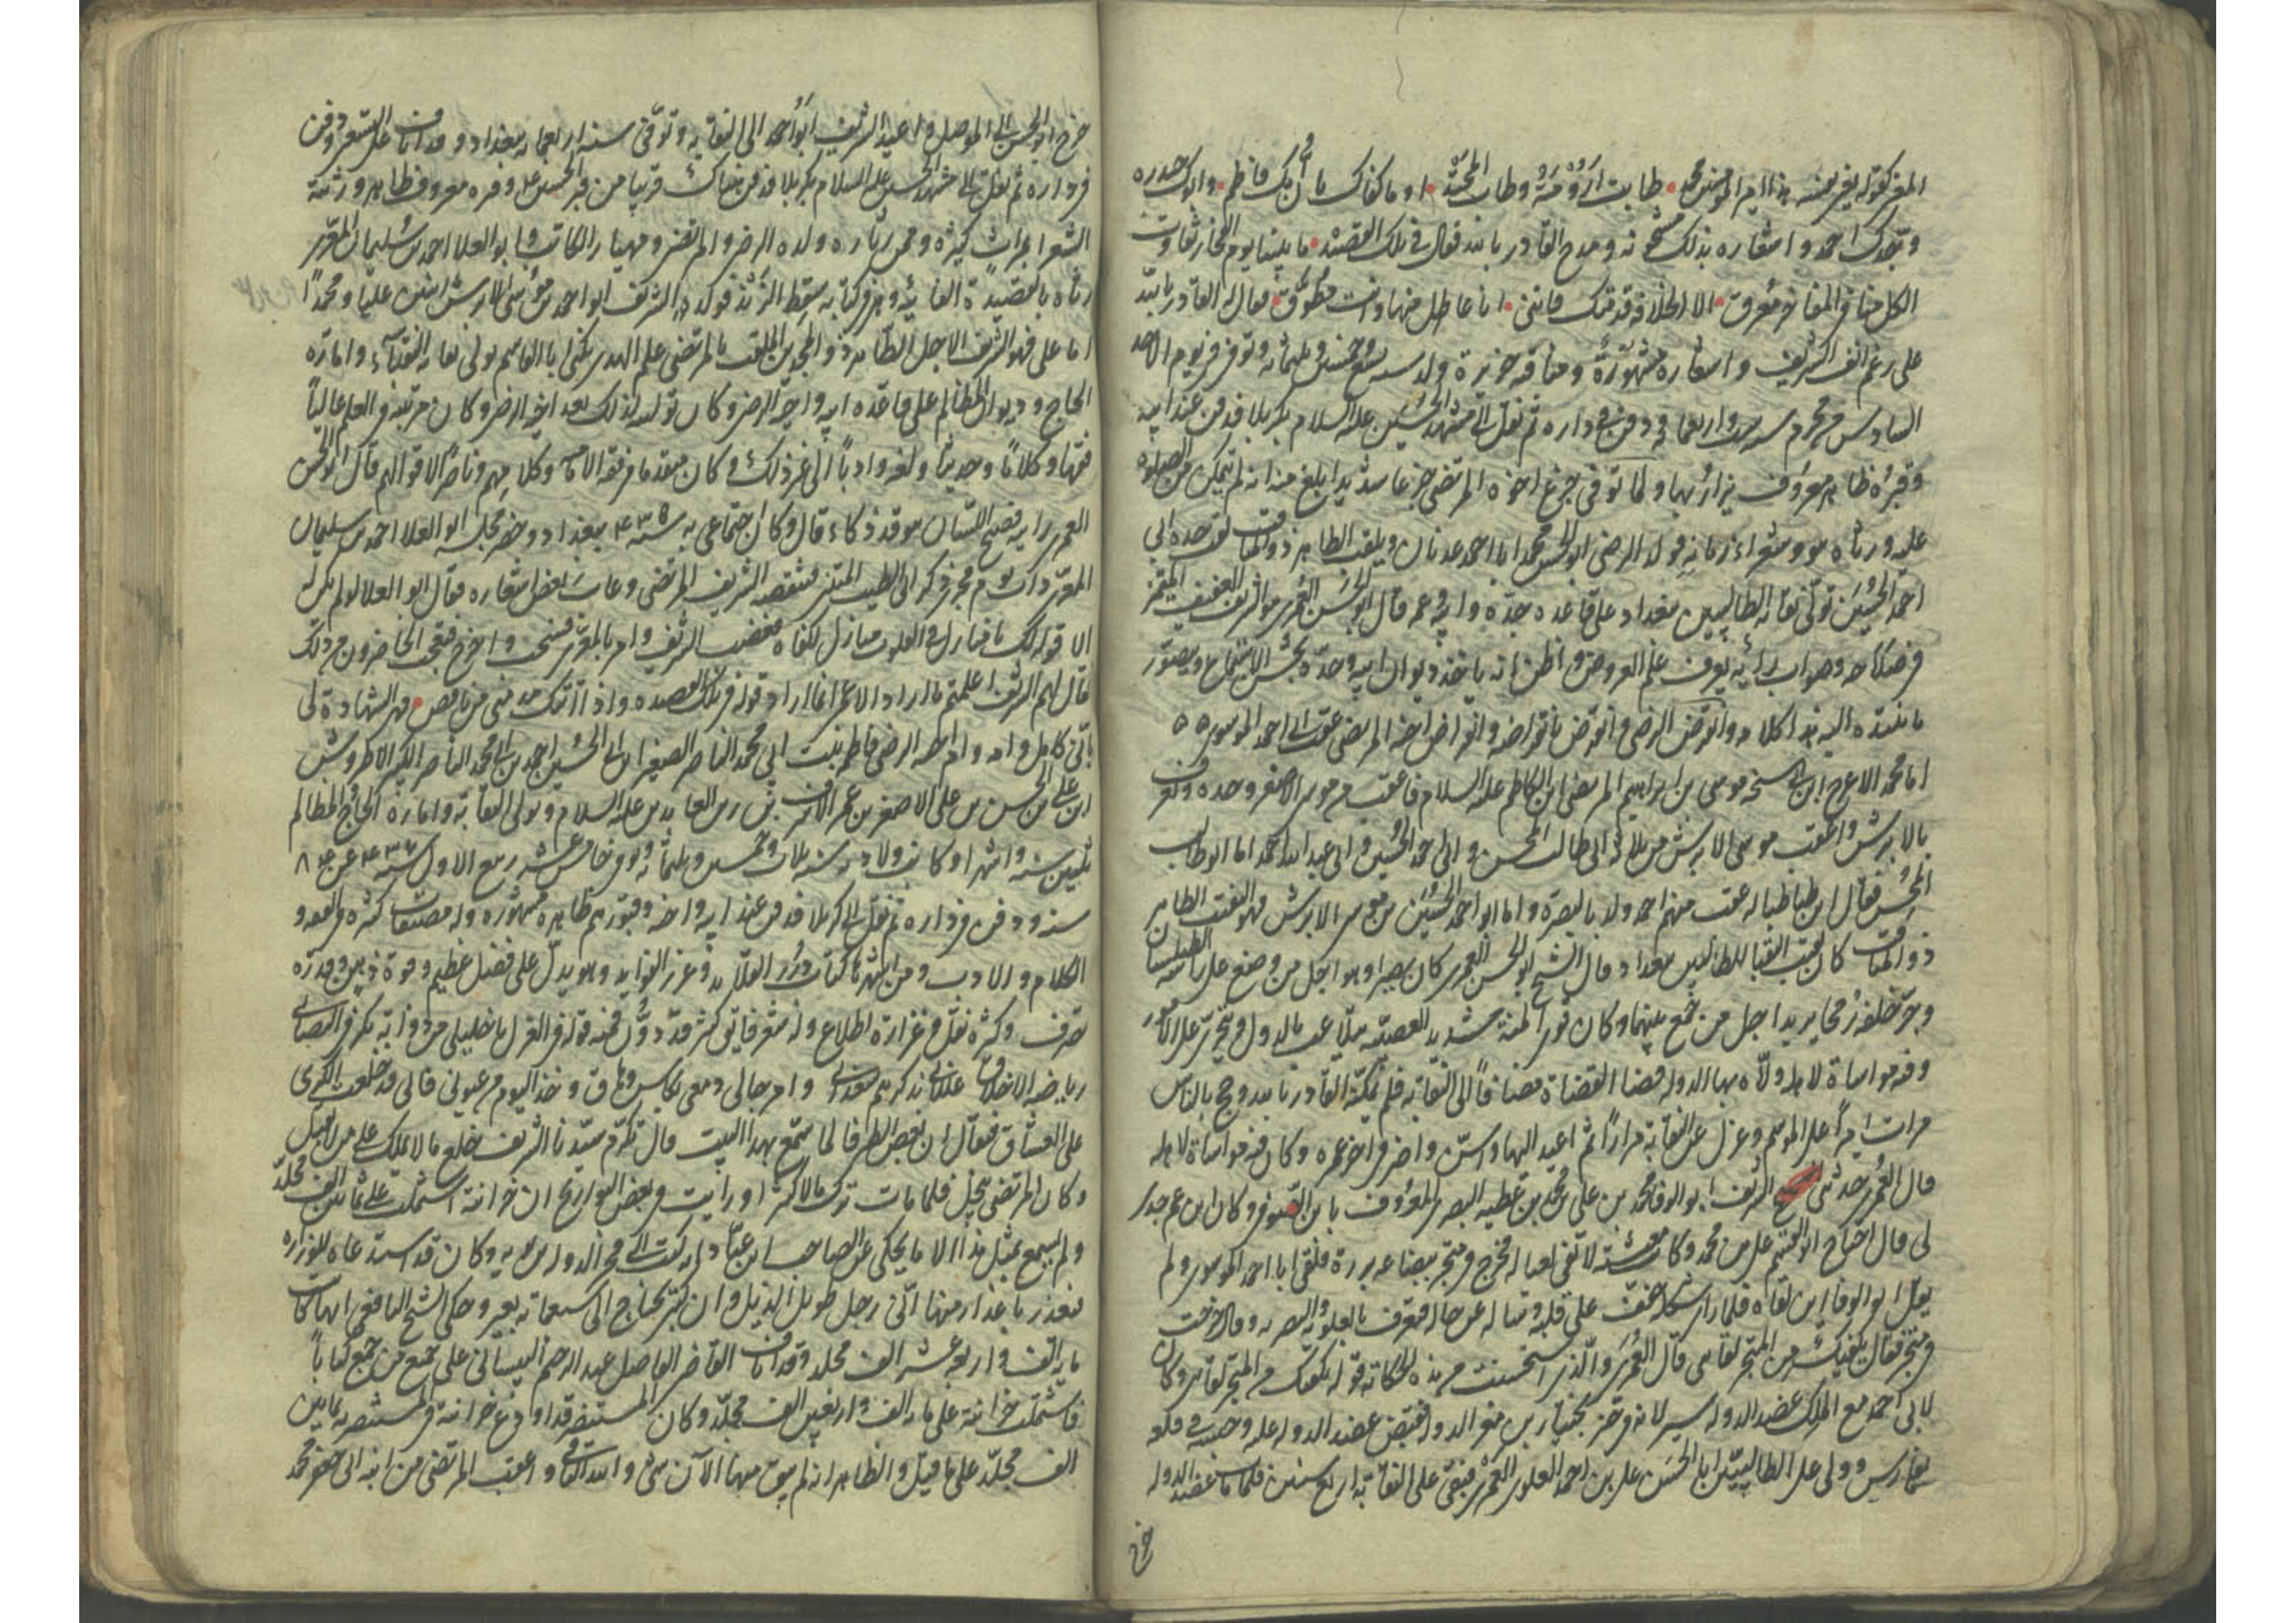 وجدك احمد واشعاره بذلك مشحونه ومدح القادر بالله فقال فى تلك القصيده ما بيننا يوم الفخار تفاوت
الا الخلافة قدمتك فاننى انا عاطل منها وانت مطوق فقال له القادر بالله
على رغم انف الشريف واشعاره مشهورة
السادس من محرم سنه ودفن فى داره ثم نقل الى مشهد الحسين عليه السلام بكربلا فدفن عند ابيه
وقبره ظاهر معروف ولما توفى جزع اخوه المرتضى جزعا شديدا بلغ منه انه لم يتمكن من الصلوه
عليه ورثاه هو وشعراء زمانه فولد الرضى ابو الحسن محمد ابا احمد عدنان ويلقب الطاهر ذو المناقب لقب جده ابى
احمد الحسين تولى نقابه الطالبيين ببغداد على قاعده جده وابيه وعمه قال ابو الحسن العمرى هو الشريف العفيف المتميز
يعرف علم العروض واظن انه ياخذ ديوان ابيه وجدته يحسن الاستماع ويتصور
ما ينبذ اليه هذا كلامه وانقرض الرضى وانقرض بانقراضه وانقراض اخيه المرتضى عقب ابى احمد الموسوى
اما محمد الاعرج ابن موسى بن ابراهيم المرتضى ابن الكاظم عليه السلام فاعقب من موسى الاصغر وحده ويعرف
بالابرش واعقب موسى الابرش من ثلاثه ابى طالب المحسن وابى احمد الحسين وابى عبد الله احمد اما ابو طالب
المحسن فقال ابن طباطبا له عقب منهم احمد ولد بالبصرة واما ابو احمد الحسين بن موسى الابرش فهو النقيب الطاهر
ذو المناقب كان نقيب النقبا للطالبيين ببغداد قال الشيخ ابو الحسن العمرى كان بصيرا وهو اجل من وضع على راسه الطيلسان
وجر خلفه رمحا يريد اجل من جمع بينهما وكان قوى المنة شديد العصبية يتلاعب بالدول ويتجرى على الامور
وفيه مواساة لاهله ولاه بها الدوله قضا القضاة مضافا الى النقابه فلم يمكنه القادر بالله وحج بالناس
مرات اميرا على الموسم وعزل عن النقابة مرارا ثم اعيد اليها واسن واضر فى اخر عمره وكان فيه مواساة لاهله
قال العمرى حدثنى الشريف ابو الوفا محمد بن على بن محمد بن عطيه البصرى المعروف بابن الصوفى وكان ابن عم جدى
لى قال احتاج ابو القسم على بن محمد وكانت معيشته لا تفى لعياله فخرج فى متجر ببضاعه نزرة فلقى ابا احمد الموسوى ولم
يقل ابو الوفا اين لقاه فلما راى شكله خف على قلبه وساله عن حاله فتعرف بالعلويه والبصريه وقال خرجت
فى متجر فقال يكفيك من المتجر لقائى قال العمرى والذى استحسنت من هذه الحكايه قوله يكفيك من المتجر لقائى وكان
لابى احمد مع الملك عضد الدوله سير لانه فى حيز بختيار بن معز الدوله فقبض عضد الدوله عليه وحبسه فى قلعه
بفارس وولى على الطالبيين ابا الحسن على بن احمد العلوى العمرى فبقى على النقابه اربع سنين فلما مات عضد الدوله
خرج
خرج ابو الحسن الى الموصل واعيد الشريف ابو احمد الى النقابه وتوفى سنه اربعمائه ببغداد وقد اناف على التسعين ودفن
فى داره ثم نقل الى مشهد الحسين عليه السلام بكربلا فدفن هناك قريبا من قبر الحسين عليه وقبره معروف ظاهر ورثته
الشعرا بمراث كثيره وممن رثاه ولده الرضى والمرتضى ومهيار الكاتب وابو العلا احمد بن سليمان المعرى
رثاه بالقصيدة الفائيه وهى فى كتابه سقط الزند فولد الشريف ابو احمد بن موسى الابرش ابنين عليا ومحمدا
اما على فهو الشريف الاجل الطاهر ذو المجدين الملقب بالمرتضى علم الهدى يكنى ابا القاسم تولى نقابه النقباء واماره
الحاج وديوان المظالم على قاعده ابيه واخيه الرضى وكان توليه لذلك بعد اخيه الرضى وكان مرتبته فى العلم عاليا
فقها وكلاما وحديثا ولغه وادبا الى غير ذلك وكان متقدما فى فقه الاماميه وكلامهم وناصرا لاقوالهم قال ابو الحسن
العمرى رايته فصيح اللسان يتوقد ذكاء قال وكان اجتماعى به سنه ٤٣٥ ببغداد وحضر مجلسه ابو العلا احمد بن سليمان
المعرى ذات يوم فجرى ذكر ابى الطيب المتنبى فتنقصه الشريف المرتضى وعاب بعض اشعاره فقال ابو العلا لو لم يكن له
الا قوله لك يا منازل فى القلوب منازل لكفاه فغضب الشريف وامر بالمعرى فسحب واخرج فتعجب الحاضرون من ذلك
فقال لهم الشريف اعلمتم ما اراد الاعمى انما اراد قوله فى تلك القصيده واذا اتتك مذمتى من ناقص فهى الشهادة لى
بانى كامل وامه وام اخيه الرضى فاطمه بنت ابى محمد الناصر الصغير ابن ابى الحسين احمد بن ابى محمد الناصر الكبير الاطروش
ابن على بن الحسن بن على الاصغر بن عمر الاشرف بن زين العابدين عليه السلام وتولى النقابة وامارة الحاج والمظالم
ثلثين سنه واشهرا وكانت ولادته سنه ثلاث وخمسين وثلثمائه وتوفى خامس عشر ربيع الاول سنه ٤٣٦ عن ٨٤
سنه ودفن فى داره ثم نقل الى كربلا فدفن عند ابيه واخيه وقبورهم ظاهره مشهوره وله مصنفات كثيره فى الفقه و
الكلام والادب ومن اشهرها كتاب درر القلائد وغرر الفوايد وهو يدل على فضل عظيم وقوة ذهن وقدره
تصرف وكثره نقل وغزارة اطلاع وله شعر فايق كثير قد دون فمنه قوله فى الغزل يا خليلى من ذوابة بكر فى التصابى
رياضه الاخلاق عللانى بذكرهم تسعدانى وامزجا لى دمعى بكاس دهاق وخذا النوم من عيونى فانى قد خلعت الكرى
على العشاق فيقال ان بعض الظرفا لما سمع بهذا البيت قال تكرم سيدنا الشريف خلع ما لا يملك على من لا يقبل
وكان المرتضى يبخل فلما مات ترك مالا كثيرا ورايت فى بعض التواريخ ان خزانته اشتملت على ثمانين الف مجلد
ولم يسمع بمثل هذا الا ما يحكى عن الصاحب ابن عباد انه كتب الى فخر الدوله بن بويه وكان قد استدعاه للوزاره
فتعذر باعذار منها انى رجل طويل الذيل وان كتبى يحتاج الى سبعمائه بعير وحكى الشيخ اليافعى انها كانت
مايه الف واربعه عشر الف مجلد وقد اناف القاضى الفاضل عبد الرحيم البيسانى على جميع من جمع كتابا
فاشتملت خزانته على مايه الف واربعين الف مجلد وكان المستنصر قد اودع خزانته فى المستنصريه ثمانين
الف مجلد على ما قيل والظاهر انه لم يبق منها الان شئ والله الباقى واعقب المرتضى من ابنه ابى جعفر محمد